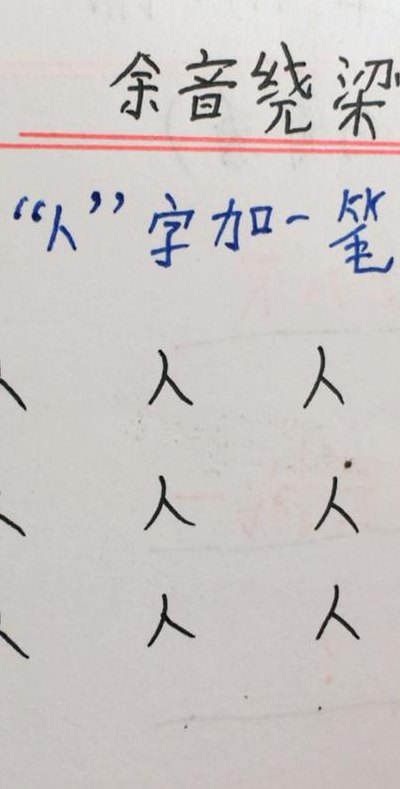 余音绕梁
“人”字加一笔
人 人 人
人 人 人
人 人 人